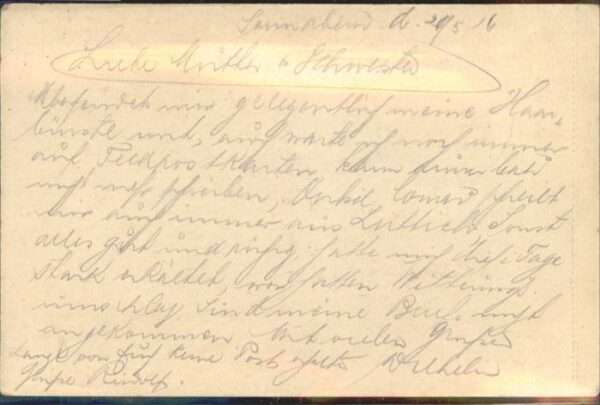 Sonnabend d. 20/5 16
Liebe Mutter u Schwester
mir gelegentlich meine Haar
bürste und, auch warte ich noch immer
auf Feldpostkarten, kann euch bald
nicht mehr schreiben, Onkel schreibt
mir auch immer aus Lüttich. Sonst
alles gut und ruhig, hatte mich diese Tage
stark erkältet, wir hatten Witterungs
umschlag. Sind meine Briefe nicht
angekommen Mit vielen Grüßen
lange von Euch keine Post erhalten Wilhelm
Grüße Rudolf.